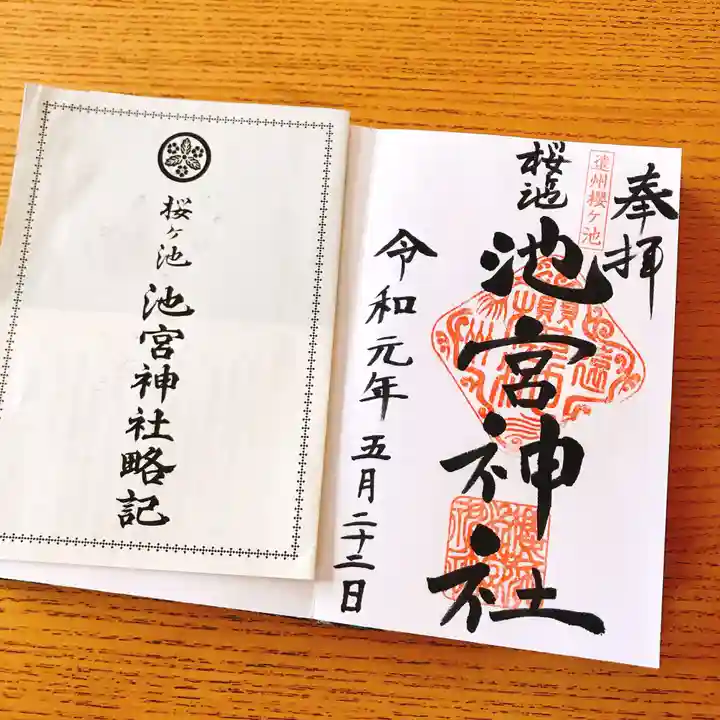 桜ヶ池
池宮神社略記
奉拝
遠州櫻ヶ池
桜ヶ池
池宮神社
令和元年五月二十二日